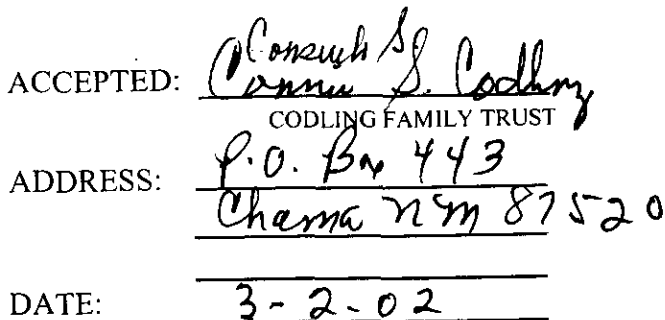 Consuelo S.
ACCEPTED: Connie S. Codling
CODLING FAMILY TRUST
ADDRESS: P.O. Box 443
Chama NM 87520
DATE: 3-2-02